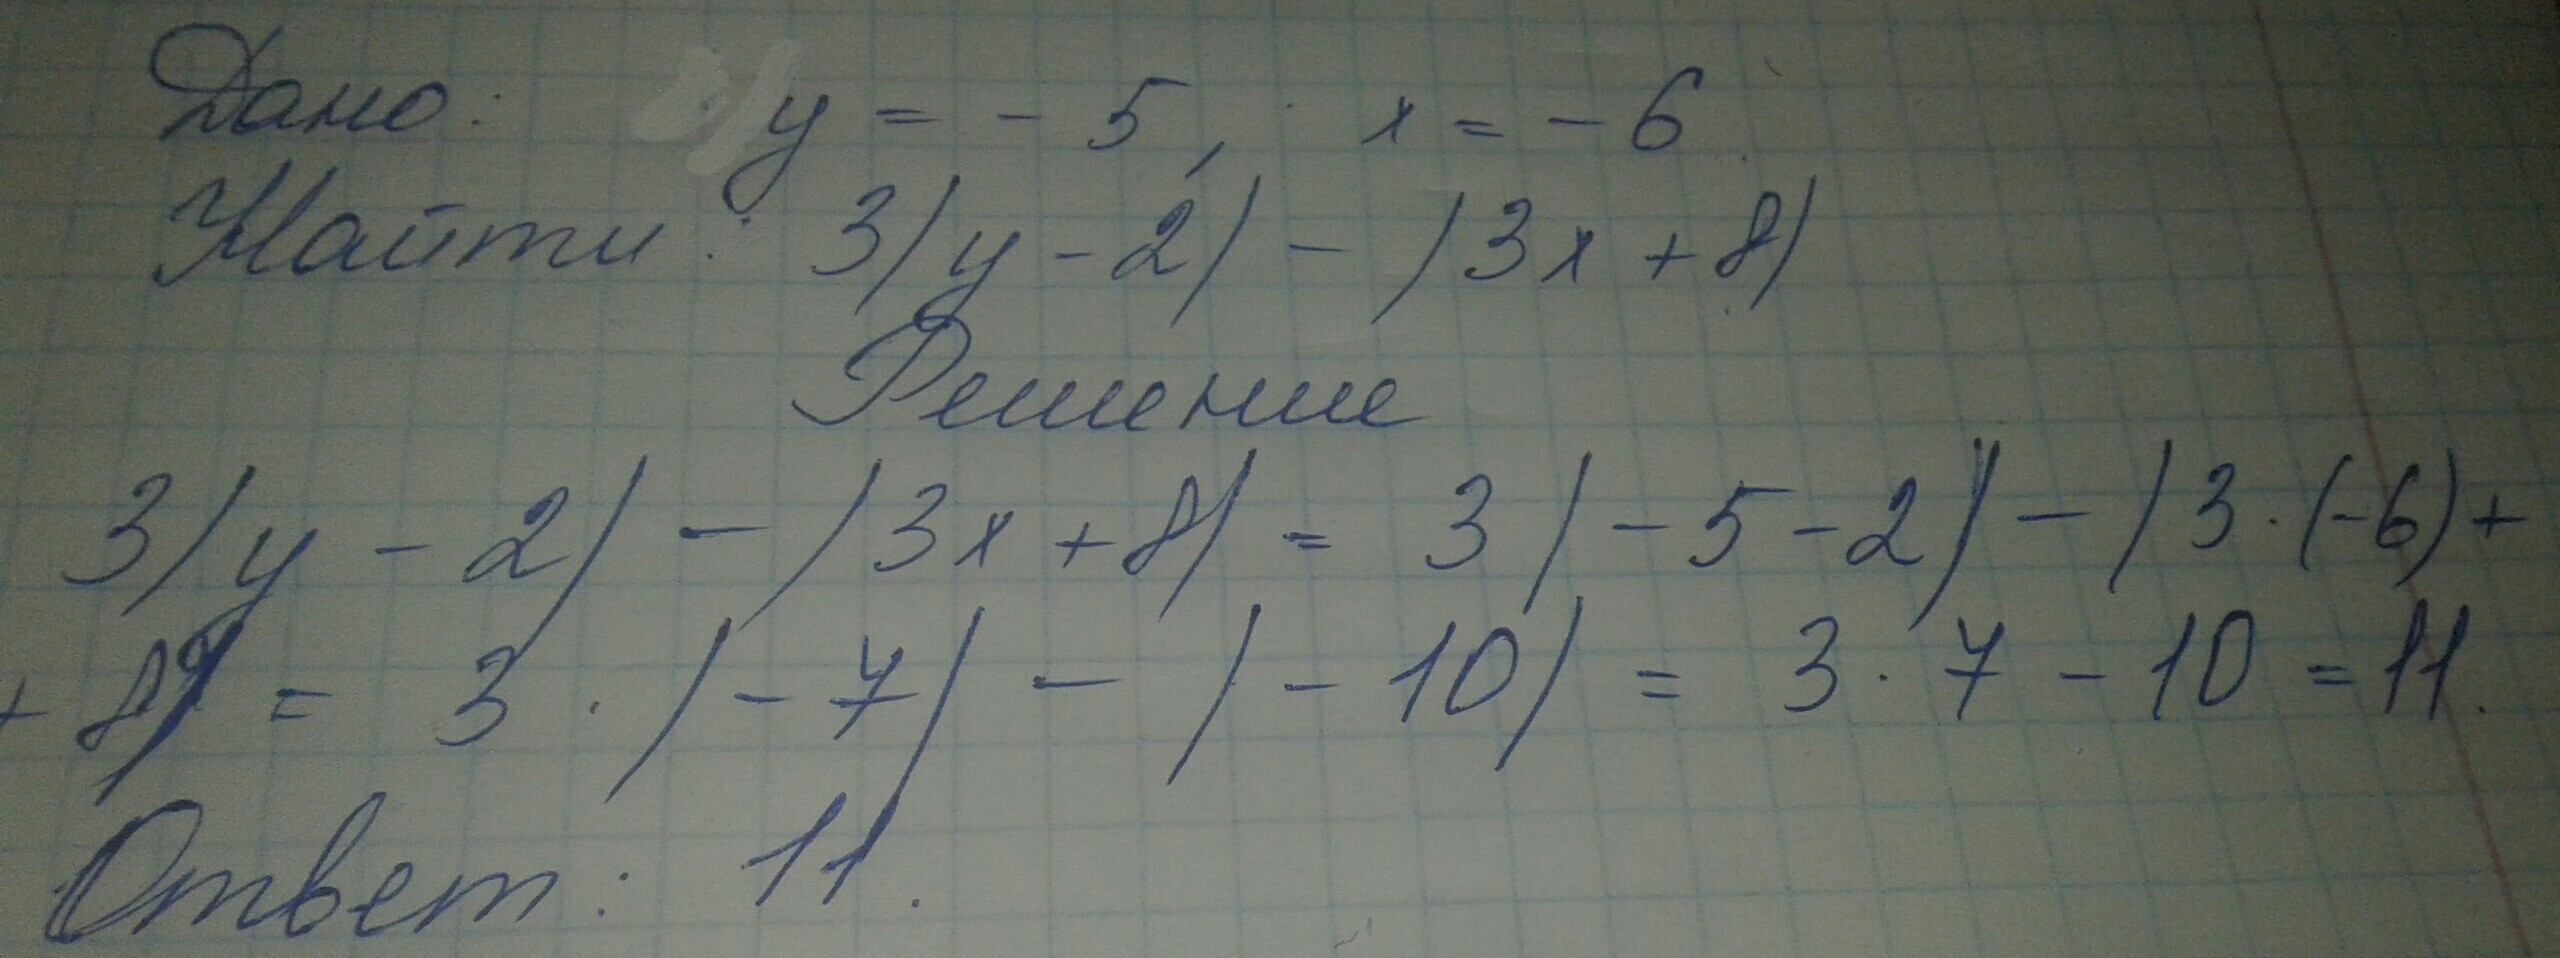 Дано: y = - 5, x = - 6.
Найти: 3|y - 2| - |3x + 8|
Решение
3|y - 2| - |3x + 8| = 3|-5-2| - |3·(-6)+
+ 8| = 3·|-7| - |-10| = 3·7 - 10 = 11.
Ответ: 11.